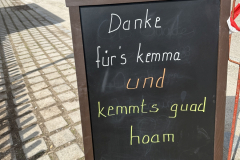 Danke
für's kemma
und
kemmts guad
hoam